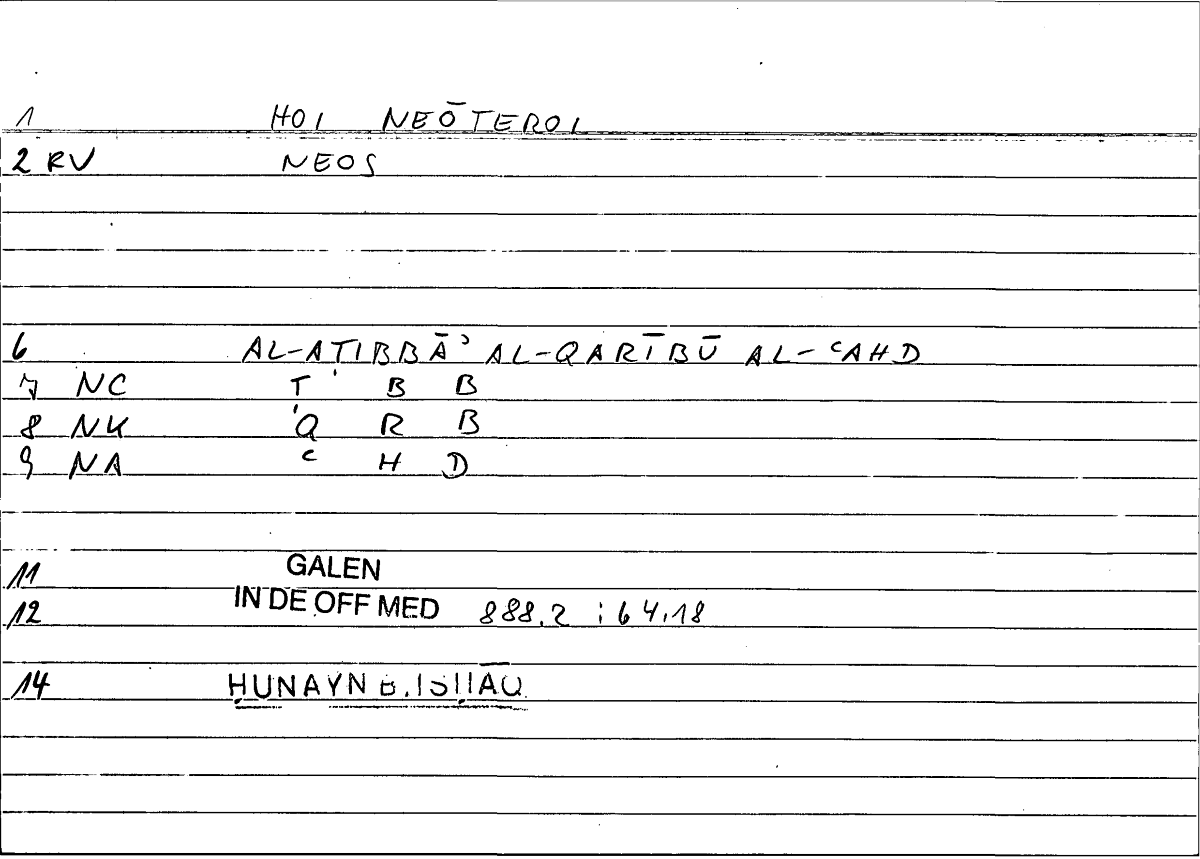 1 HOI NEŌTEROI
2 RV NEOS
6 AL-AṬIBBĀʾ AL-QARĪBŪ AL-ʿAHD
7 NC Ṭ B B
8 NK Q R B
9 NA ʿ H D
11 GALEN
12 IN DE OFF MED 888.2 : 64.18
14 ḤUNAYN B. ISḤĀQ